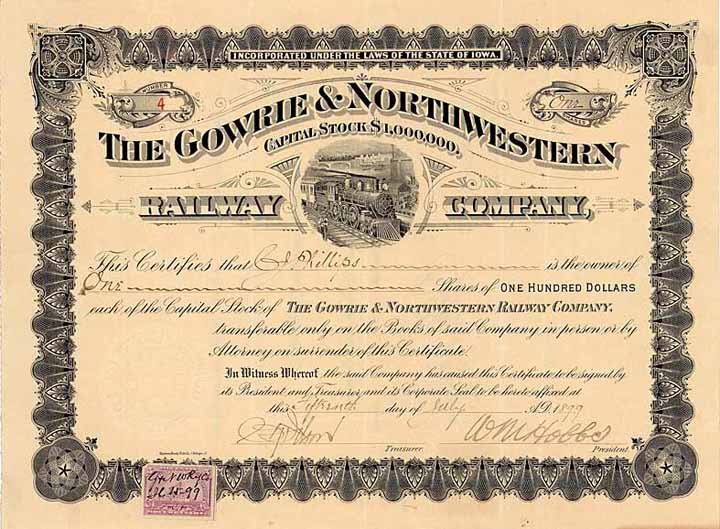 INCORPORATED UNDER THE LAWS OF THE STATE OF IOWA
NUMBER
4
One
SHARES
THE GOWRIE & NORTHWESTERN
CAPITAL STOCK $1,000,000.
RAILWAY COMPANY,
This Certifies that C J Phillips is the owner of
One Shares of ONE HUNDRED DOLLARS
each of the Capital Stock of THE GOWRIE & NORTHWESTERN RAILWAY COMPANY.
transferable only on the Books of said Company in person or by
Attorney on surrender of this Certificate.
In Witness Whereof the said Company has caused this Certificate to be signed by
its President and Treasurer and its Corporate Seal to be hereto affixed at
this fifteenth day of July A.D. 1899
WM Hobbs
Treasurer. President.
15-99